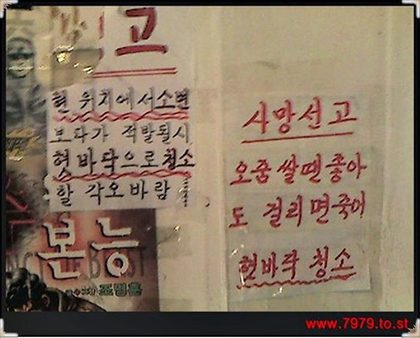 고
현 위치에서 소변
보다가 적발될시
혓바닥으로 청소
할 각오 바람
본능
조명훈
사망선고
오줌 쌀땐 좋아
도 걸리면 죽어
혓바닥 청소
www.7979.to.st